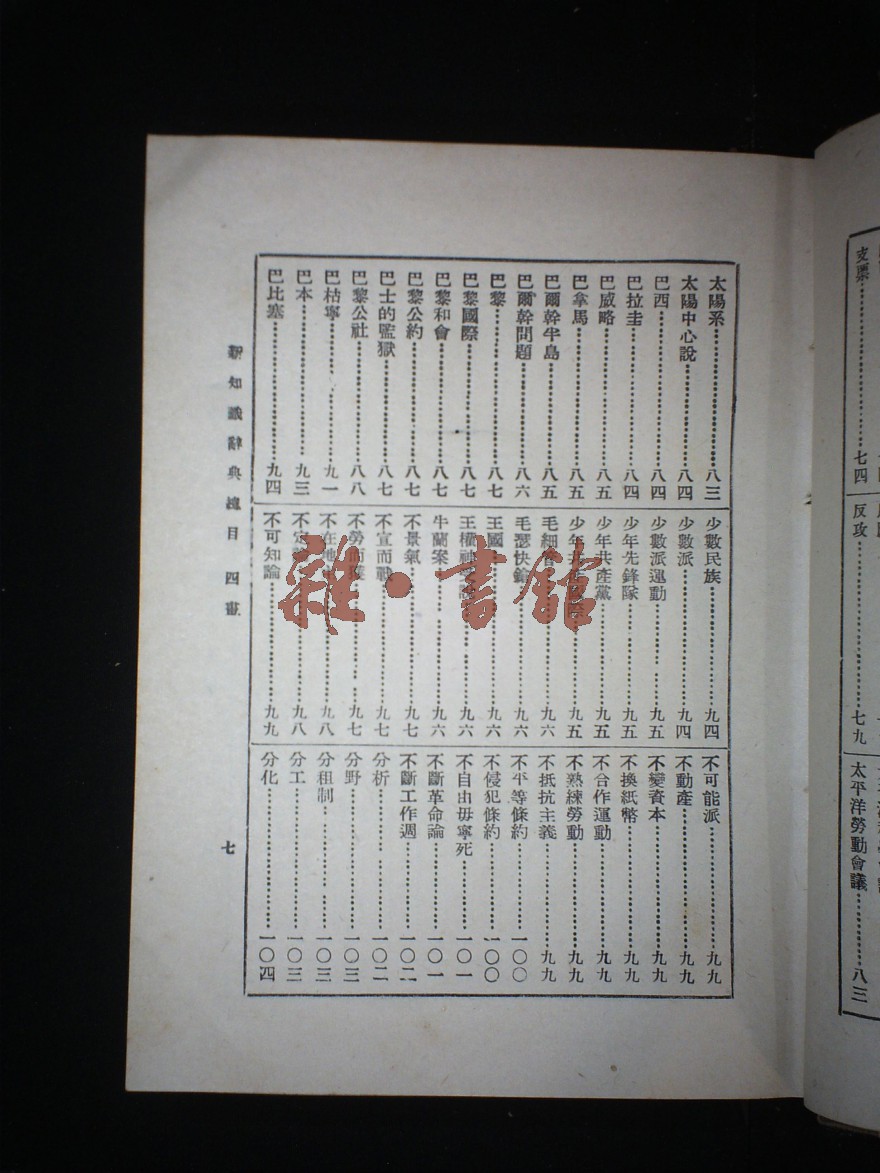 太陽系 八三
太陽中心說 八四
巴西 八四
巴拉圭 八四
巴威略 八五
巴拿馬 八五
巴爾幹半島 八五
巴爾幹問題 八六
巴黎 八七
巴黎國際 八七
巴黎和會 八七
巴黎公約 八七
巴士的監獄 八七
巴黎公社 八八
巴枯寧 九一
巴本 九三
巴比塞 九四
少數民族 九四
少數派 九四
少數派運動 九五
少年先鋒隊 九五
少年共產黨 九五
少年共產國際 九五
毛細管 九六
毛瑟快鎗 九六
王國 九六
王權神 九六
牛蘭案 九六
不景氣 九七
不宣而戰 九七
不勞而獲 九七
不在地 九八
不定 九八
不可知論 九九
不可能派 九九
不動產 九九
不變資本 九九
不換紙幣 九九
不合作運動 九九
不熟練勞動 九九
不抵抗主義 九九
不平等條約 一〇〇
不侵犯條約 一〇〇
不自由毋寧死 一〇一
不斷革命論 一〇一
不斷工作週 一〇二
分析 一〇二
分野 一〇三
分租制 一〇三
分工 一〇三
分化 一〇四
新知識辭典總目 四畫
七
雜·書館
支票 七四
反攻 七九
太平洋勞動會議 八三